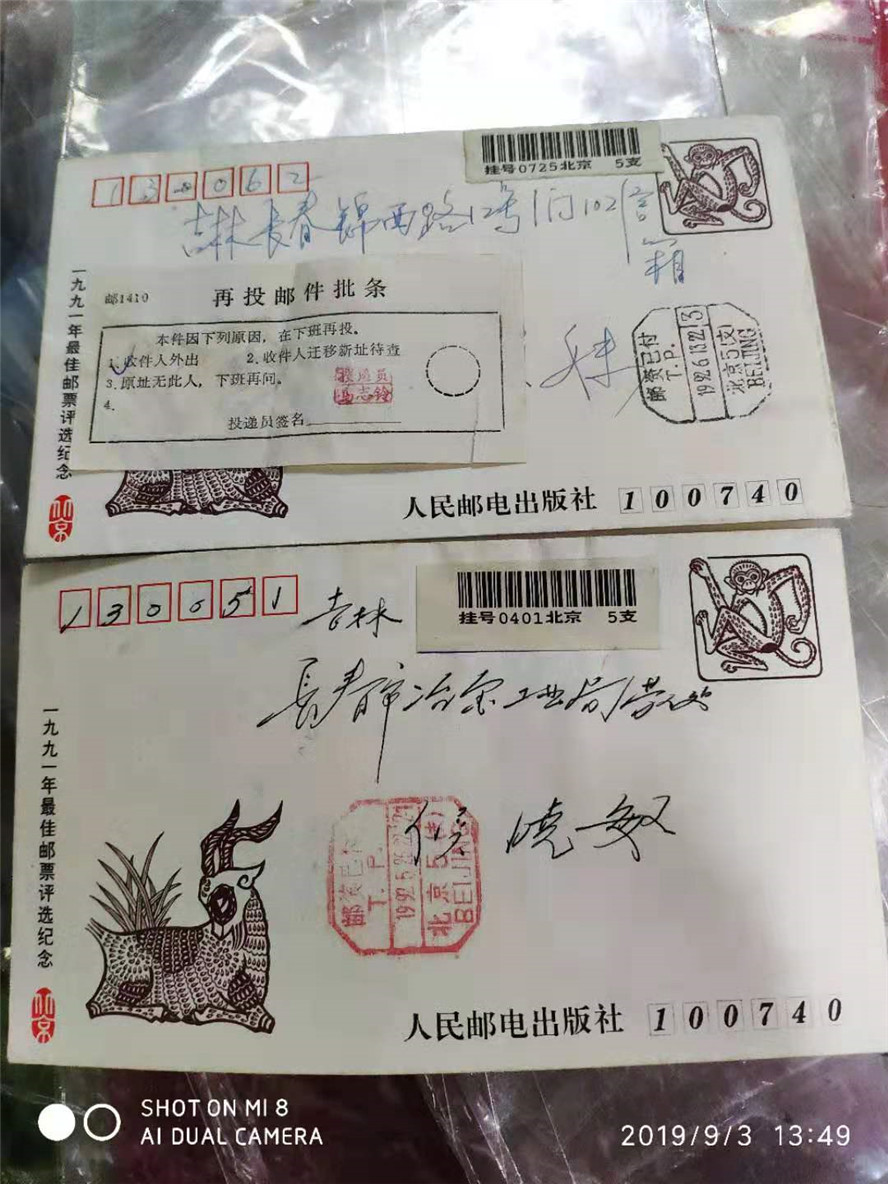 挂号0725北京 5支
130062
吉林长春锦西路12号1门102信
箱
一九九一年最佳邮票评选纪念
北京
邮1410 再投邮件批条
本件因下列原因，在下班再投。
1.收件人外出 2.收件人迁移新址待查
3.原址无此人，下班再问。
4.
投递员签名
投递员
冯志铨
邮资已付
T.P.
1992.6.13.22
北京5(支)
BEIJING
人民邮电出版社 100740
130051 吉林
挂号0401北京 5支
长春市冶金工业局劳
侯晓敏
一九九一年最佳邮票评选纪念
北京
邮资已付
T.P.
1992.5
北京5(支)
BEIJING
人民邮电出版社 100740
SHOT ON MI 8
AI DUAL CAMERA
2019/9/3 13:49